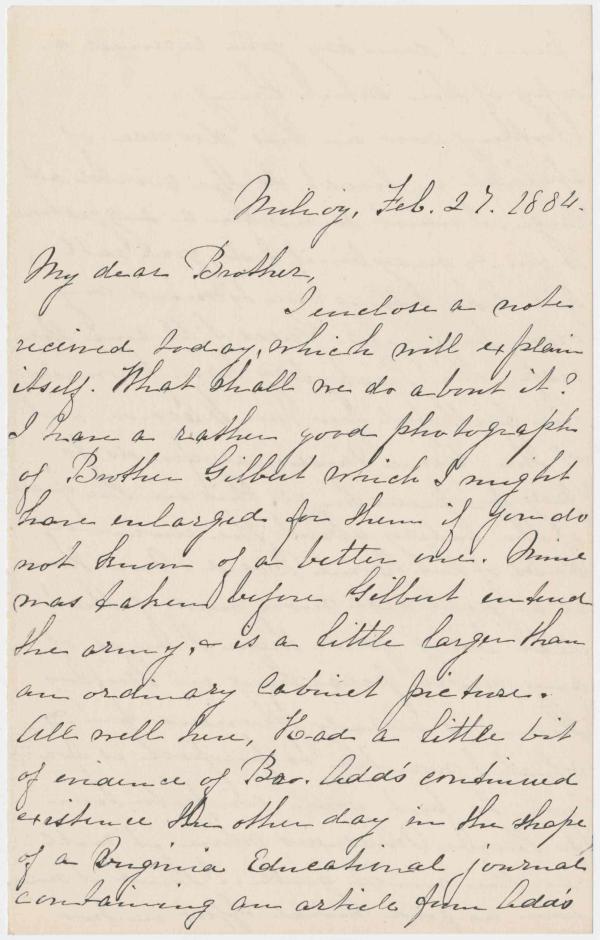 Milroy, Feb. 27. 1884.
My dear Brother,
I enclose a note
received today, which will explain
itself. What shall we do about it?
I have a rather good photograph
of Brother Gilbert which I might
have enlarged for them if you do
not know of a better one. Mine
was taken before Gilbert entered
the army, & is a little larger than
an ordinary Cabinet picture.
All well here, Had a little bit
of evidence of Bro. Add's continued
existence the other day in the shape
of a Virginia Educational journal
containing an article from Add's